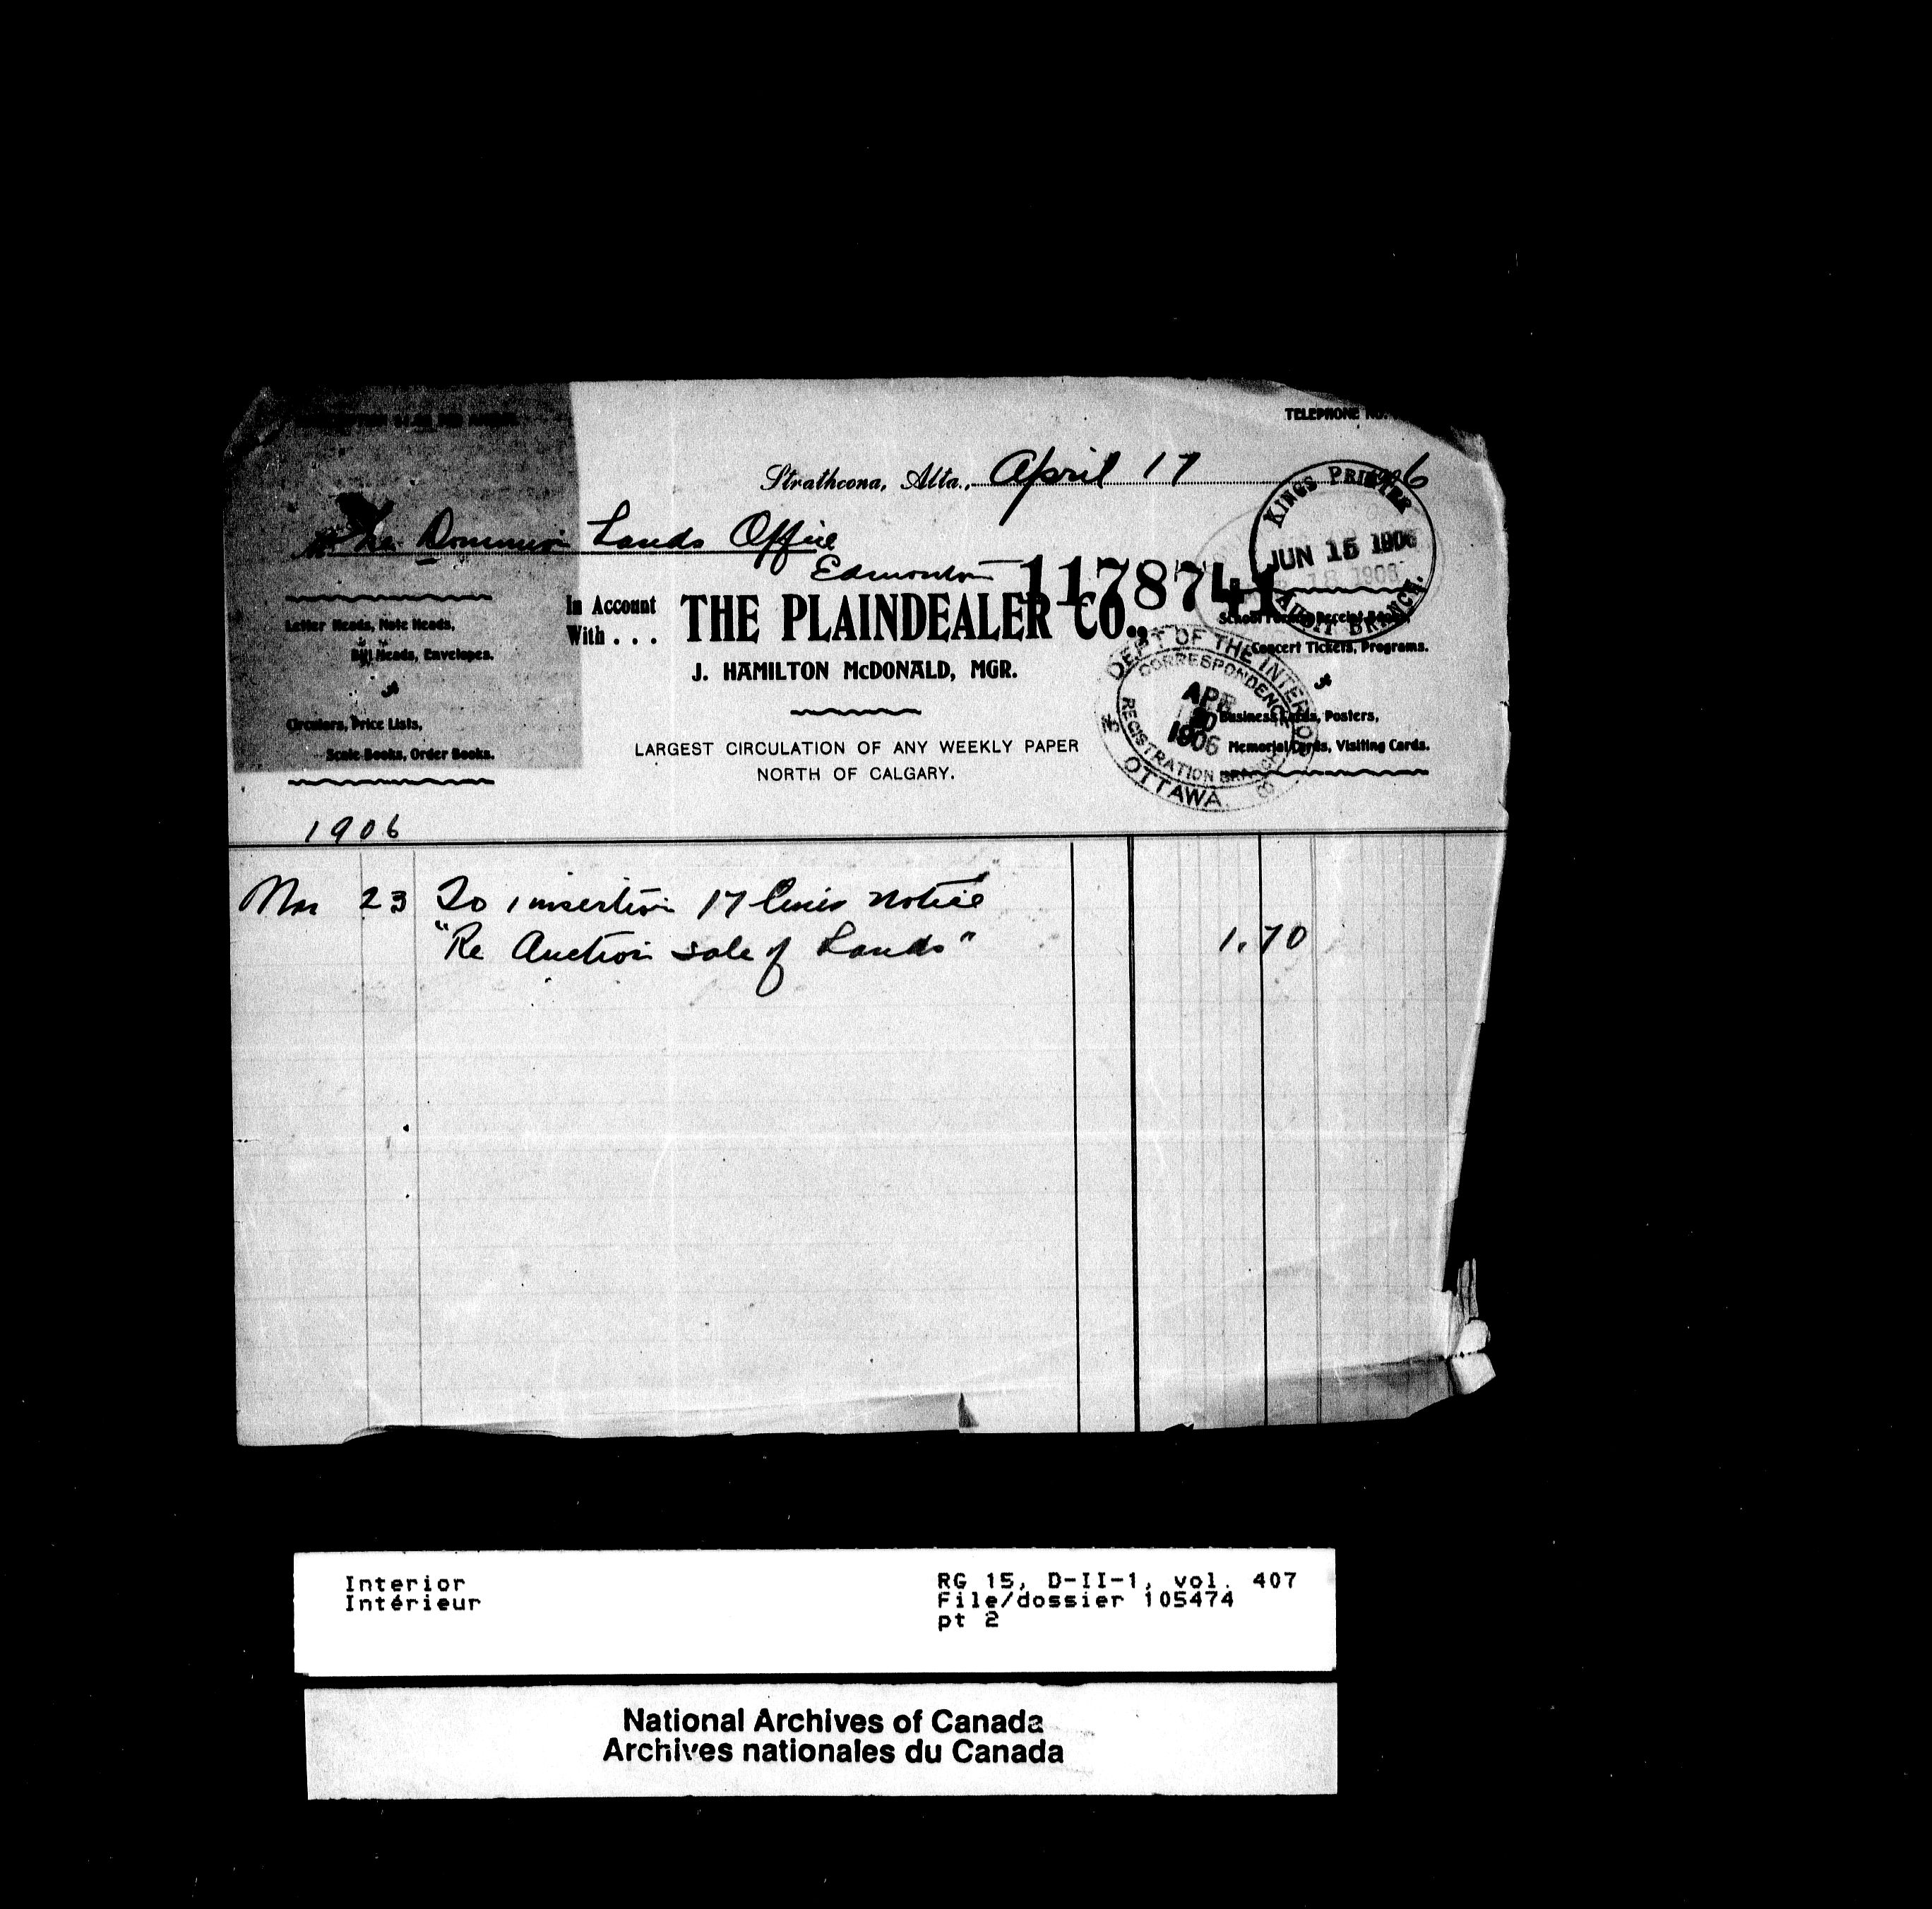 TELEPHONE NO.
Strathcona, Alta., April 17 1906
The Dominion Lands Office
Edmonton
1178741
In Account
With . . .
THE PLAINDEALER CO.,
J. HAMILTON McDONALD, MGR.
LARGEST CIRCULATION OF ANY WEEKLY PAPER
NORTH OF CALGARY.
Letter Heads, Note Heads,
Bill Heads, Envelopes.
Circulars, Price Lists,
Scale Books, Order Books.
School Receipt Books,
Concert Tickets, Programs.
Business Cards, Posters,
Memorial Cards, Visiting Cards.
KINGS PRINTER
JUN 15 1906
AUDIT BRANCH.
DEPT OF THE INTERIOR
CORRESPONDENCE
APR
20
1906
REGISTRATION BRANCH
OTTAWA
1906
Mar 23 To insertion 17 lines notice
"Re Auction sale of Lands" 1.70
Interior
Intérieur
RG 15, D-II-1, vol. 407
File/dossier 105474
pt 2
National Archives of Canada
Archives nationales du Canada